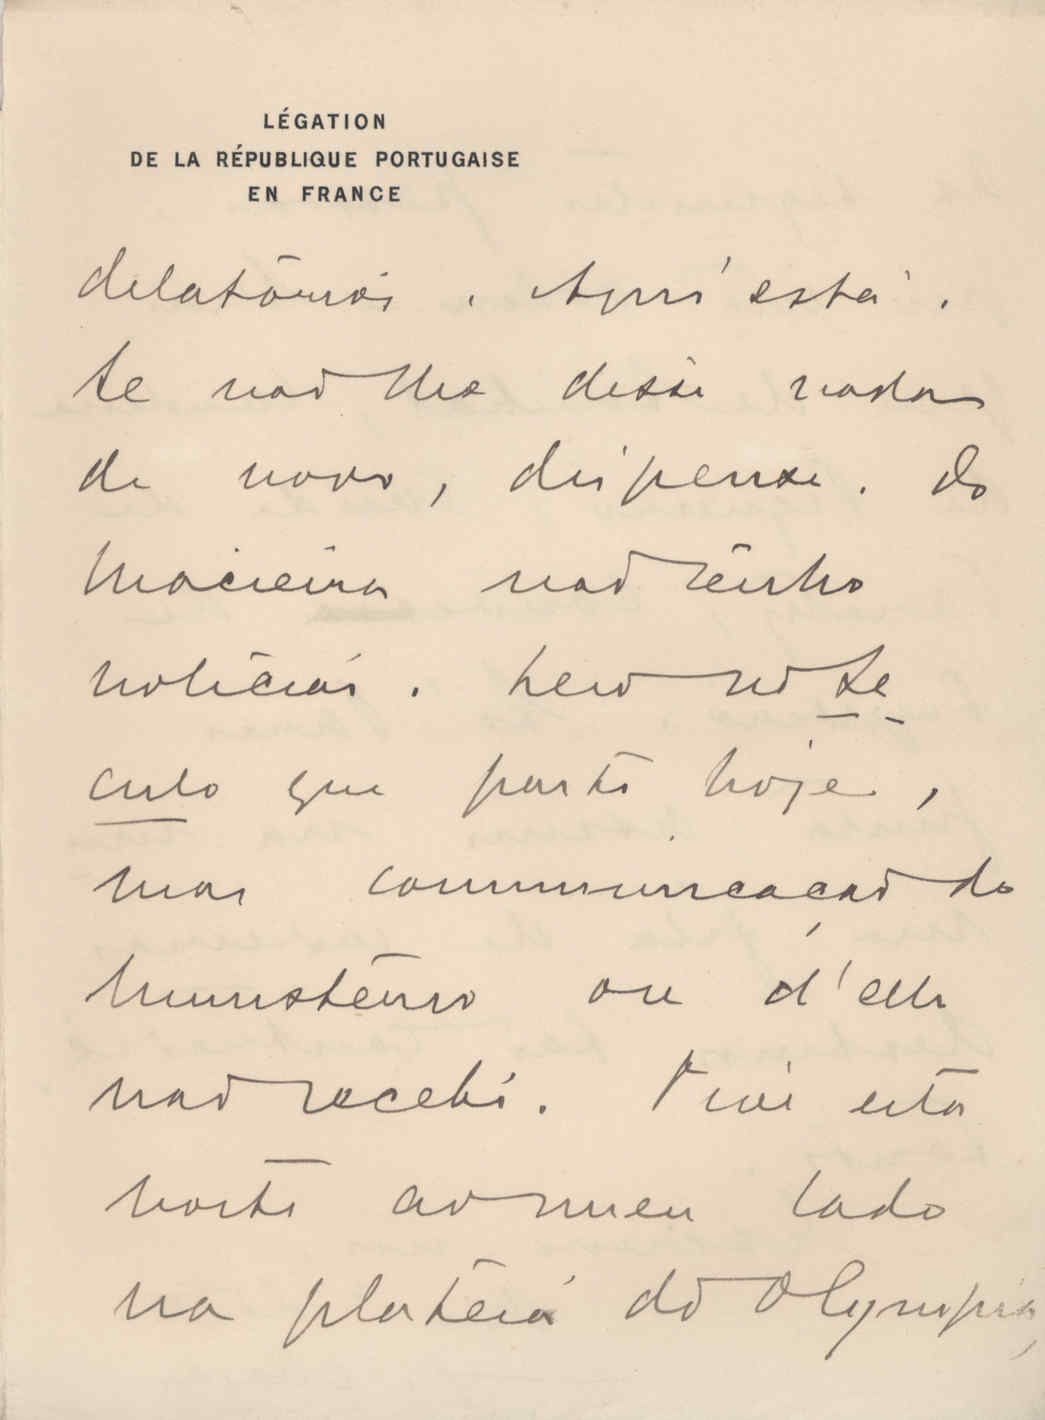 LÉGATION
DE LA RÉPUBLIQUE PORTUGAISE
EN FRANCE
dilatórios. Aqui está.
Se não lhe disse nada
de novo, dispense. Do
Macieira não tenho
noticias. Leio no Se
culo que parte hoje,
mas communicação do
ministério ou d'elle
não recebi. Tive esta
noite ao meu lado
na plateia do Olympia,